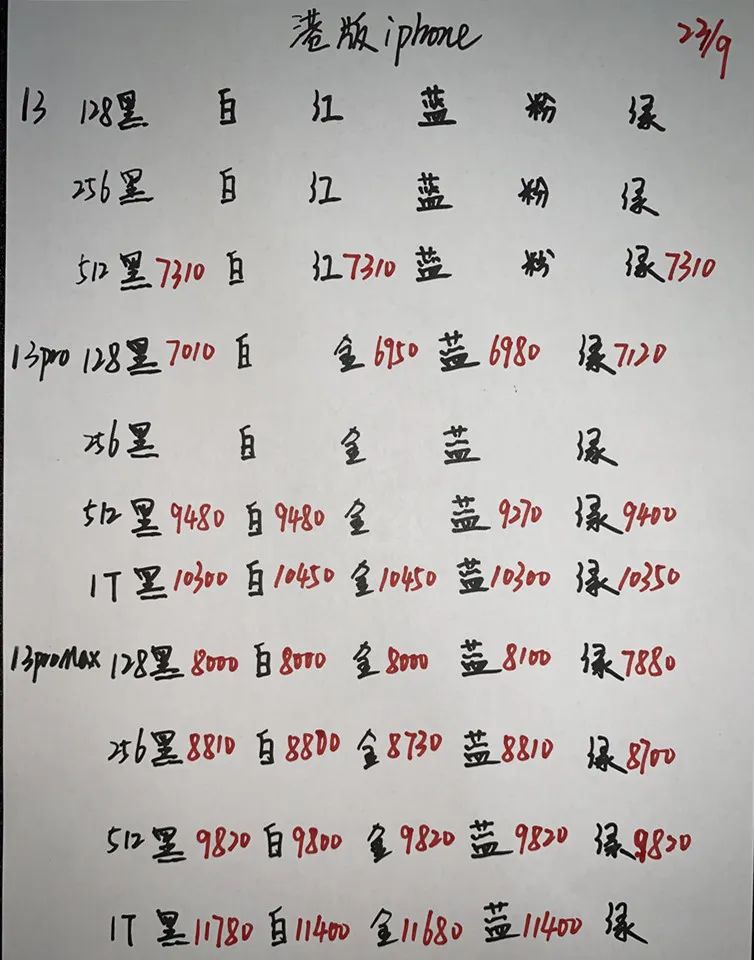 港版iphone 23/9
13 128黑 白 红 蓝 粉 绿
256黑 白 红 蓝 粉 绿
512黑7310 白 红7310 蓝 粉 绿7310
13pro 128黑7010 白 金6950 蓝6980 绿7120
256黑 白 金 蓝 绿
512黑9480 白9480 金 蓝9270 绿9400
1T黑10300 白10450 金10450 蓝10300 绿10350
13proMax 128黑8000 白8000 金8000 蓝8100 绿7880
256黑8810 白8800 金8730 蓝8810 绿8700
512黑9820 白9800 金9820 蓝9820 绿9820
1T黑11780 白11400 金11680 蓝11400 绿